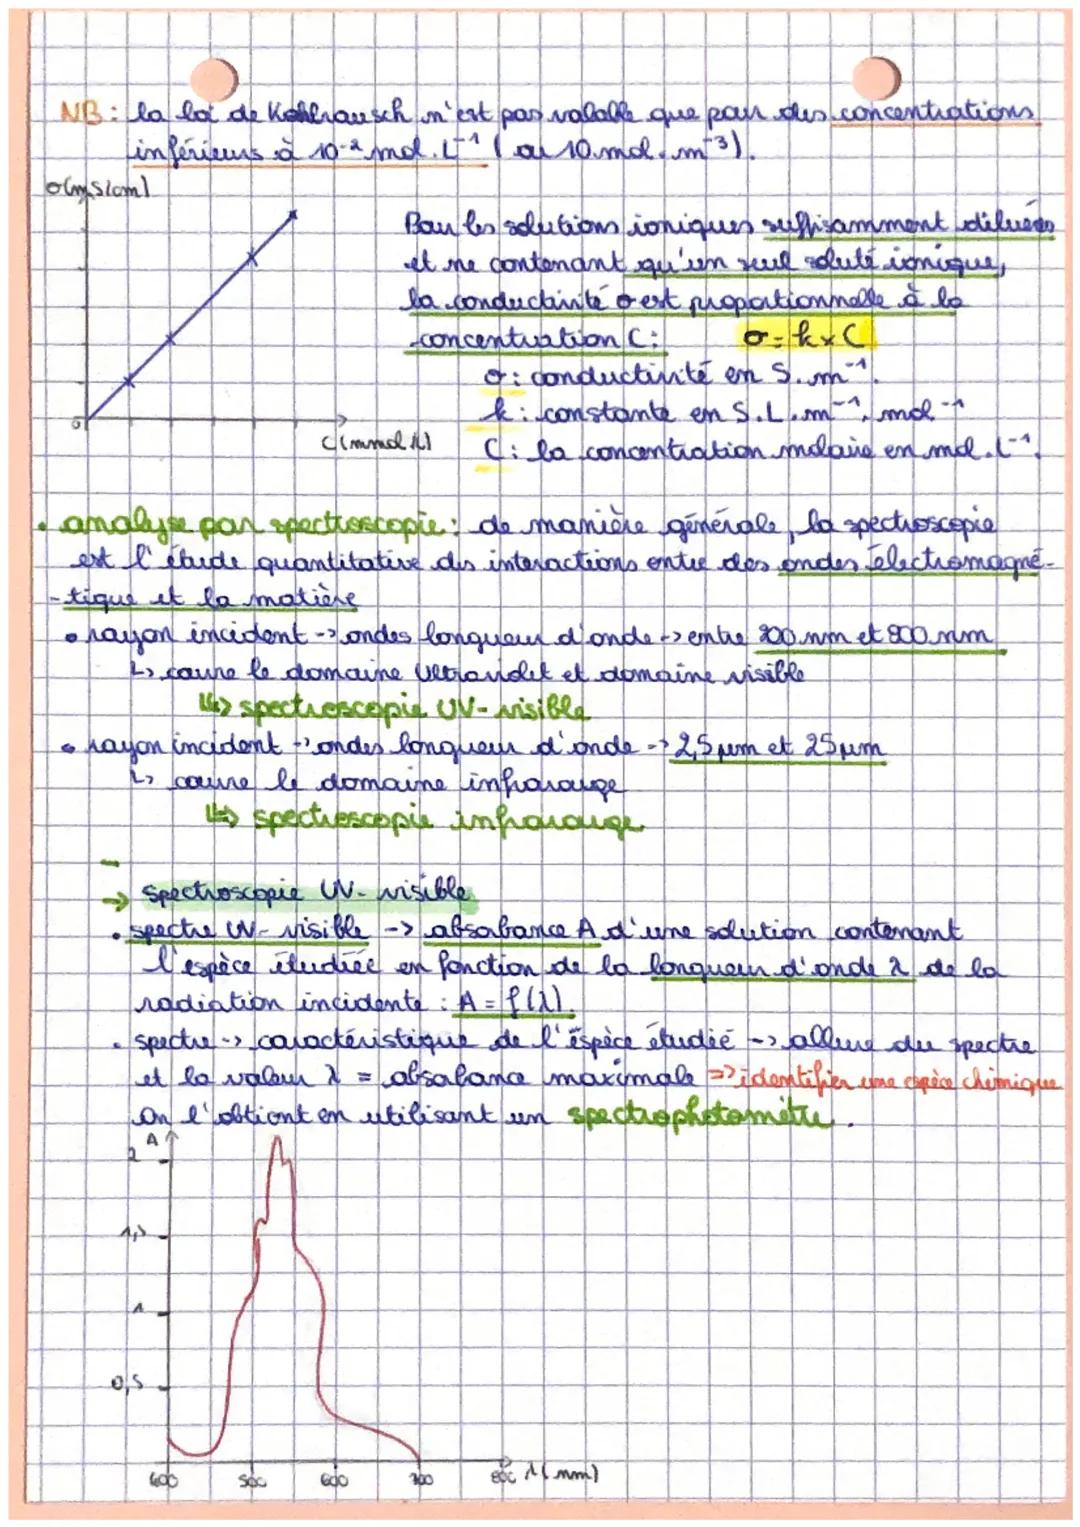 NB : la loi de Kohlrausch n'est pas valable que pour des concentrations
inférieurs à 10⁻² mol.L⁻¹ (ou 10 mol.m⁻³).
σ(mS/cm)
Pour les solutions ioniques suffisamment diluées
et ne contenant qu'un seul soluté ionique,
la conductivité σ est proportionnelle à la
concentration C : σ = k x C
σ : conductivité en S.m⁻¹.
k : constante en S.L.m⁻¹.mol⁻¹
C : la concentration molaire en mol.L⁻¹.
0
C(mmol/L)
• analyse par spectroscopie : de manière générale, la spectroscopie
est l'étude quantitative des interactions entre des ondes électromagné-
-tique et la matière
• rayon incident -> ondes longueur d'onde -> entre 200 nm et 800 nm
↳ couvre le domaine Ultraviolet et domaine visible
↳> spectroscopie UV-visible
• rayon incident -> ondes longueur d'onde -> 2,5 µm et 25 µm
↳ couvre le domaine infrarouge
↳> spectroscopie infrarouge
-> spectroscopie UV-visible
• spectre UV-visible -> absorbance A d'une solution contenant
l'espèce étudiée en fonction de la longueur d'onde λ de la
radiation incidente : A = f(λ).
• spectre -> caractéristique de l'espèce étudié -> allure du spectre
et la valeur λ = absorbance maximale => identifier une espèce chimique
On l'obtient en utilisant un spectrophotomètre.
A
2
1,5
1
0,5
400 500 600 700 800 λ(nm)